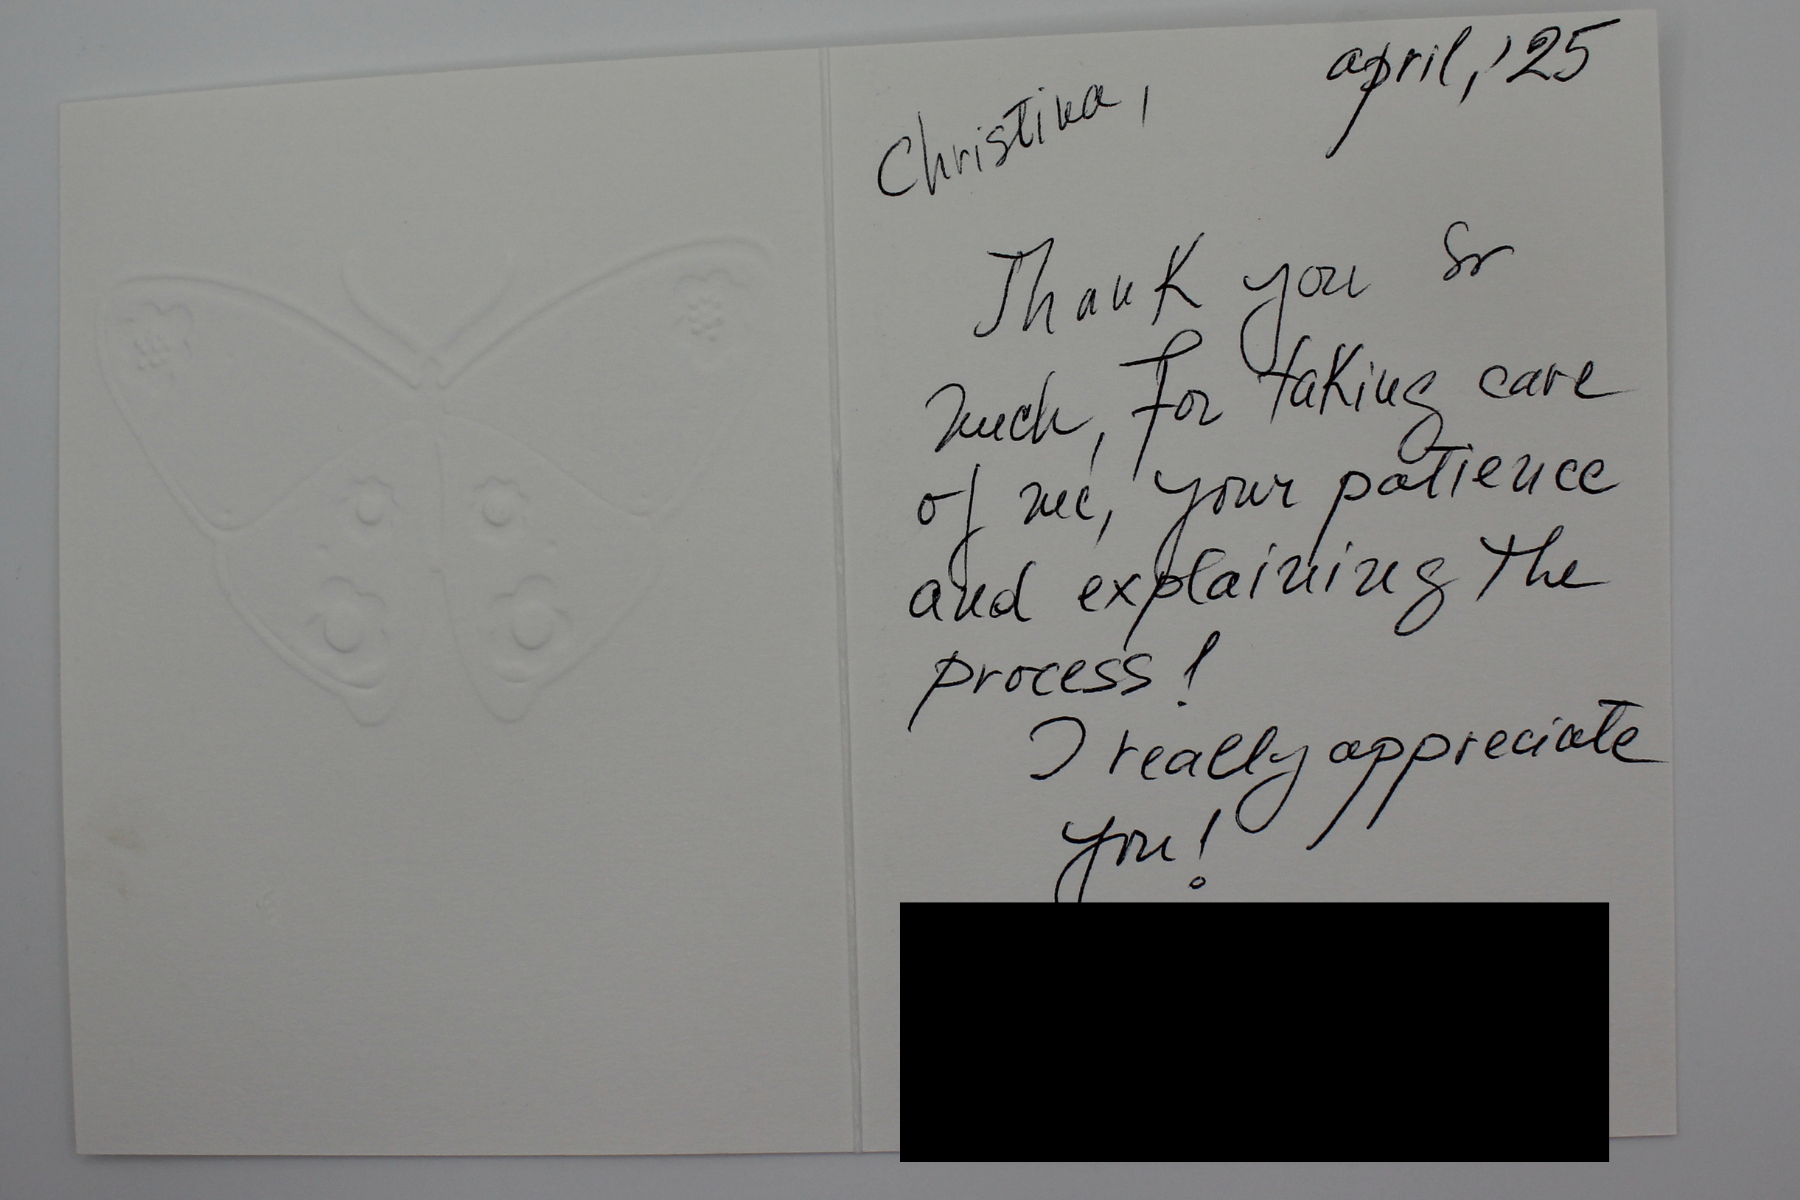 april, '25
Christina,
Thank you so
much, for taking care
of me, your patience
and explaining the
process!
I really appreciate
you!